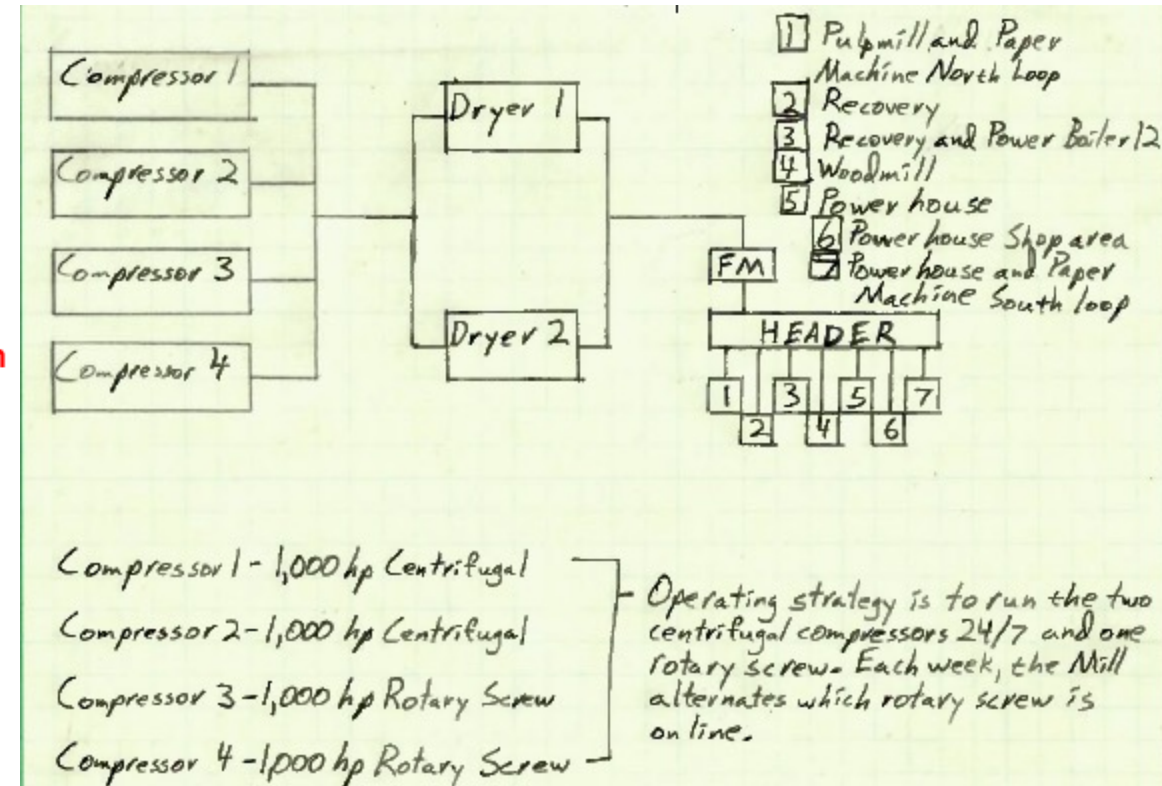 Compressor 1
Compressor 2
Compressor 3
Compressor 4
Dryer 1
Dryer 2
FM
HEADER
1
3
5
7
2
4
6
1 Pulpmill and Paper
Machine North Loop
2 Recovery
3 Recovery and Power Boiler 12
4 Woodmill
5 Power house
6 Power house Shop area
7 Power house and Paper
Machine South loop
Compressor 1 - 1,000 hp Centrifugal
Compressor 2 - 1,000 hp Centrifugal
Compressor 3 - 1,000 hp Rotary Screw
Compressor 4 - 1,000 hp Rotary Screw
Operating strategy is to run the two
centrifugal compressors 24/7 and one
rotary screw. Each week, the Mill
alternates which rotary screw is
on line.